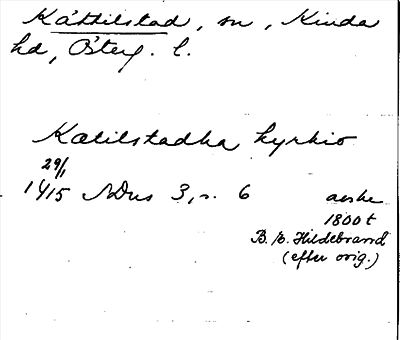 Kättilstad, sn, Kinda
hd, Österg. l.
Katilstadha kyrkio
29/1
1415 NDns 3, s. 6
avskr
1800 t
B. E. Hildebrand
(efter orig.)